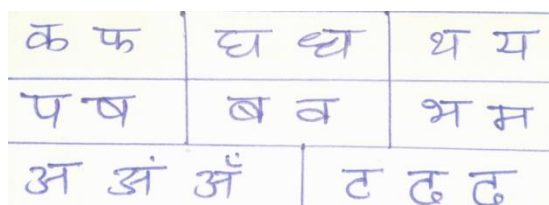 क फ घ ध थ य
प ष ब व भ म
अ अं अँ ट ढ द